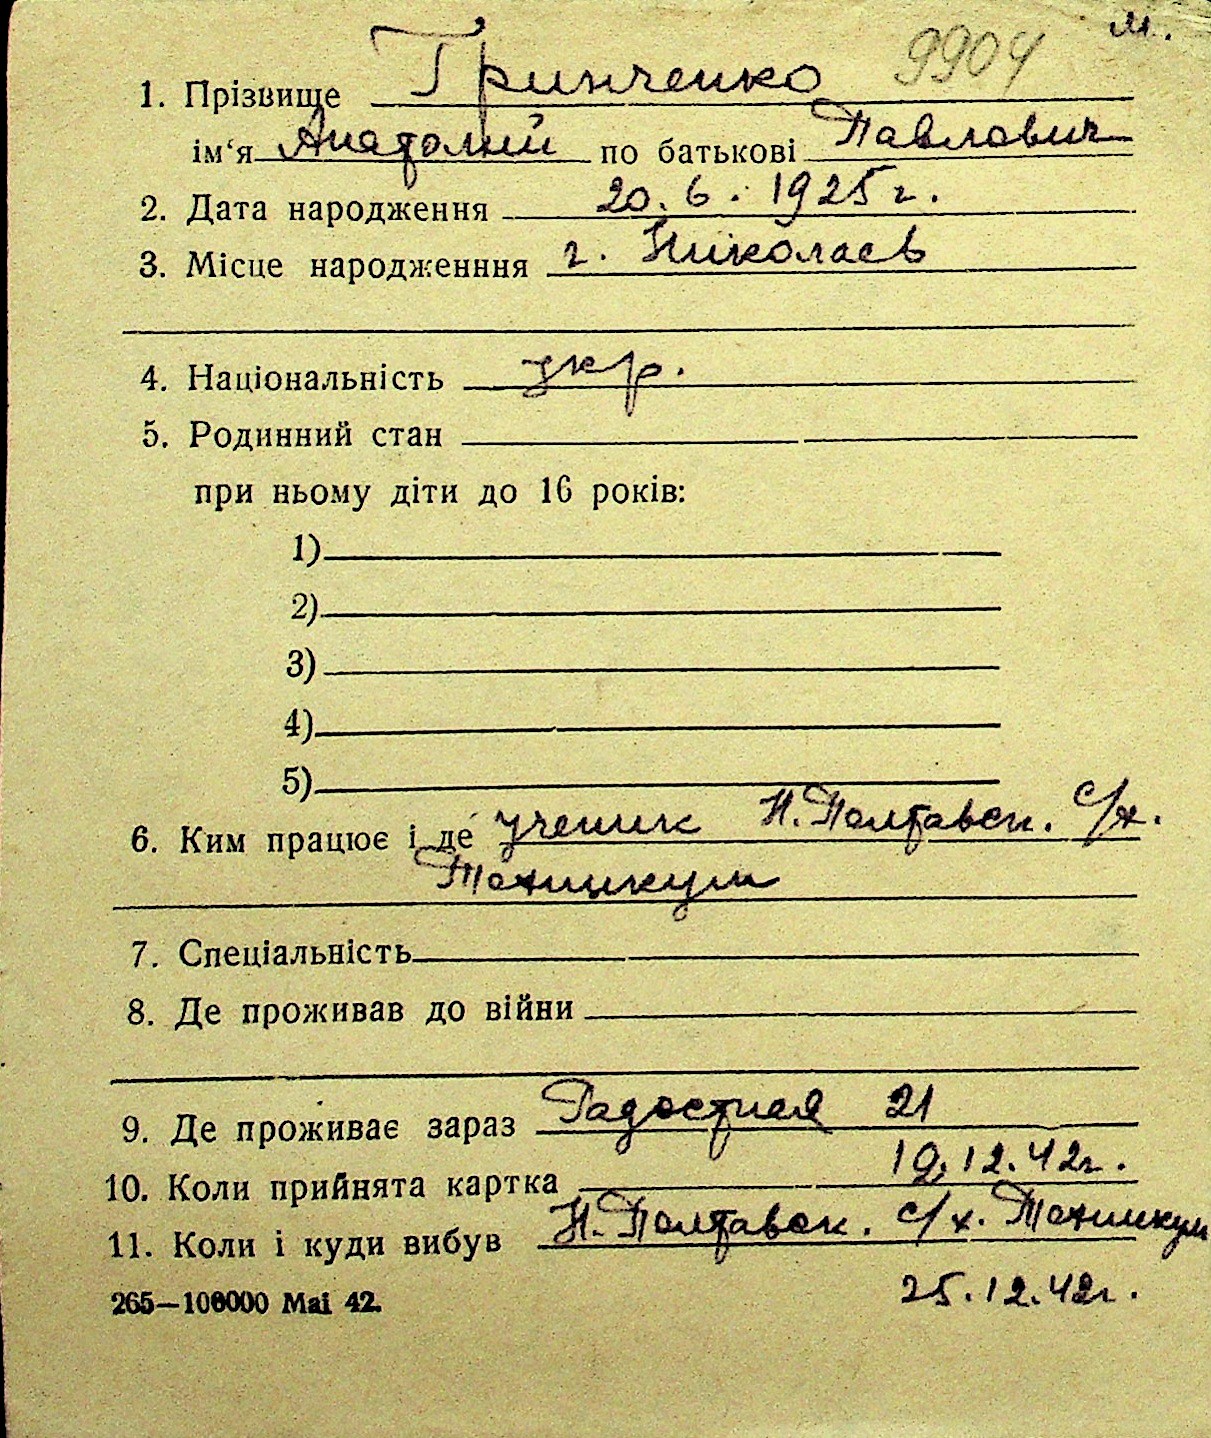 м.
9904
1. Прізвище Гринченко
ім‘я Анатолий по батькові Павлович
2. Дата народження 20.6.1925 г.
3. Місце народженння г. Николаев
4. Національність укр.
5. Родинний стан
при ньому діти до 16 років:
1)
2)
3)
4)
5)
6. Ким працює і де ученик Н. Полтавск. с/х.
Техникум
7. Спеціальність
8. Де проживав до війни
9. Де проживає зараз Радостная 21
10. Коли прийнята картка 19.12.42г.
11. Коли і куди вибув Н. Полтавск. с/х. Техникум
265—100000 Mai 42.
25.12.42г.